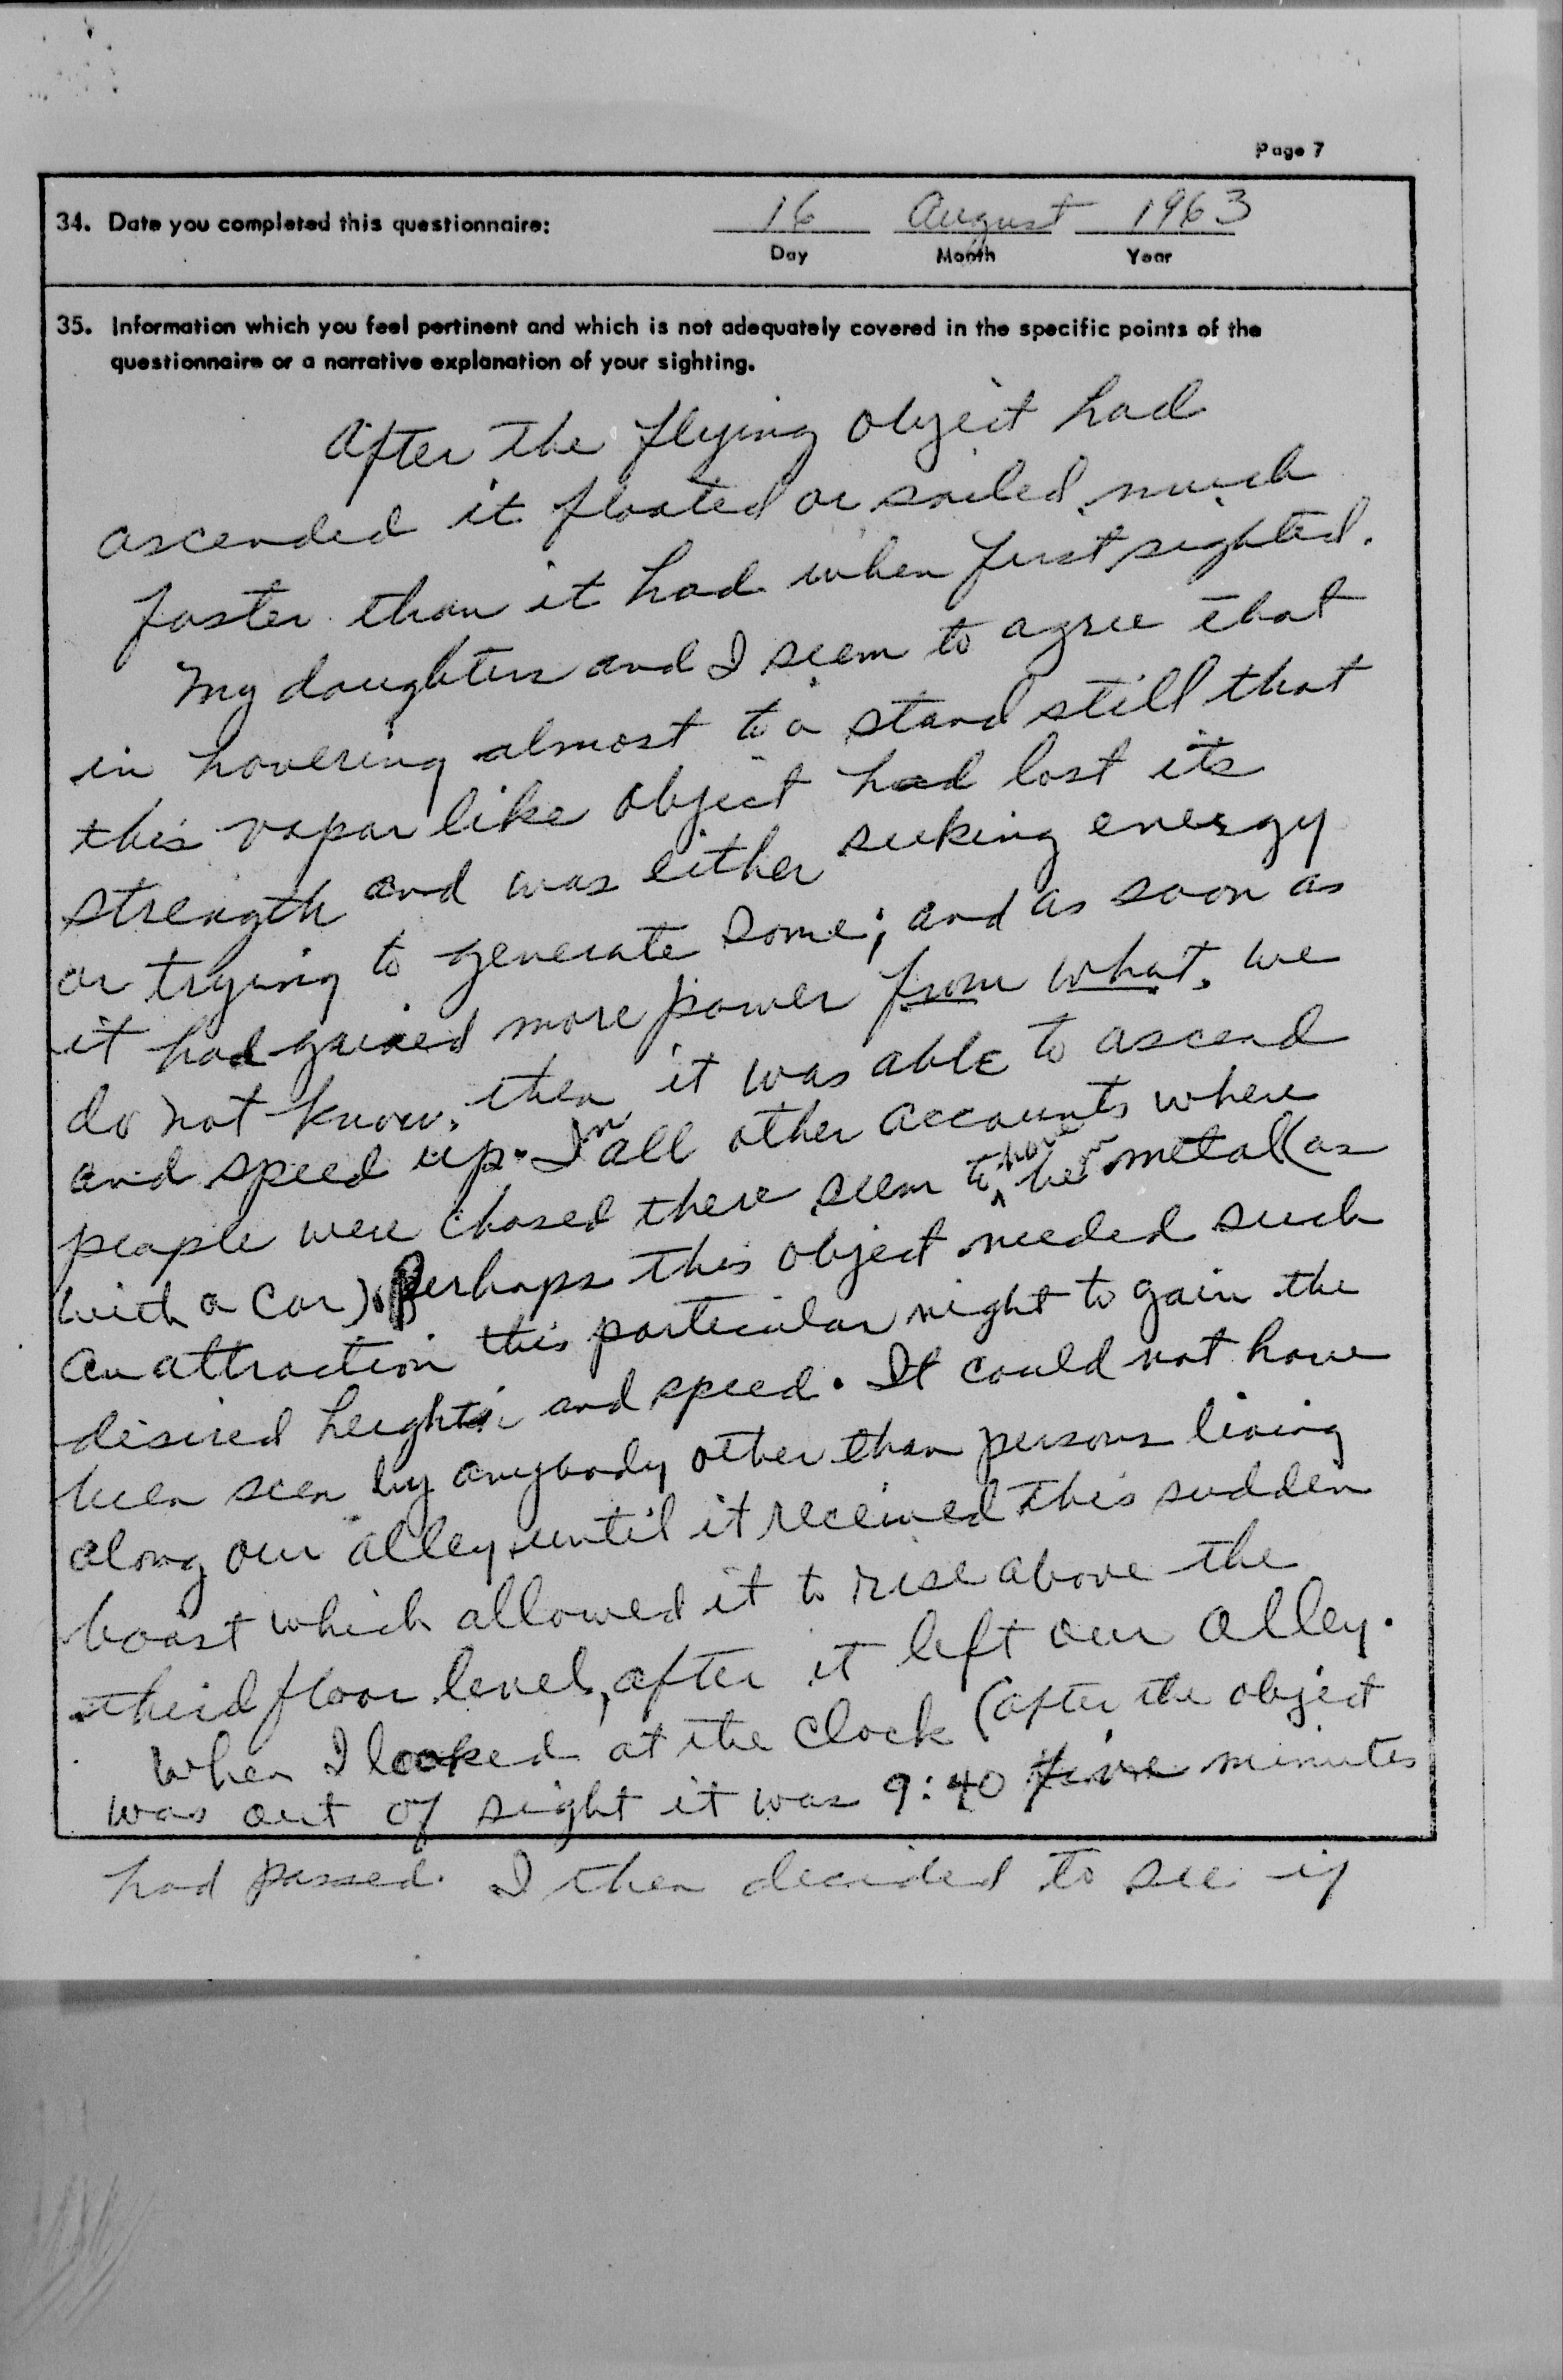 Page 7
34. Date you completed this questionnaire: 16 August 1963
Day Month Year
35. Information which you feel pertinent and which is not adequately covered in the specific points of the
questionnaire or a narrative explanation of your sighting.
After the flying object had
ascended it floated or sailed much
faster than it had when first sighted.
My daughters and I seem to agree that
in hovering almost to a stand still that
this vapor like object had lost its
strength and was either seeking energy
or trying to generate some; and as soon as
it had gained more power from what, we
do not know, then it was able to ascend
and speed up. In all other accounts where
people were chased there seem to have been metal (as
with a car). Perhaps this object needed such
an attraction this particular night to gain the
desired heights and speed. It could not have
been seen by anybody other than persons living
along our alley until it received this sudden
boost which allowed it to rise above the
third floor level, after it left our alley.
When I looked at the clock (after the object
was out of sight it was 9:40 five minutes
had passed. I then decided to see if